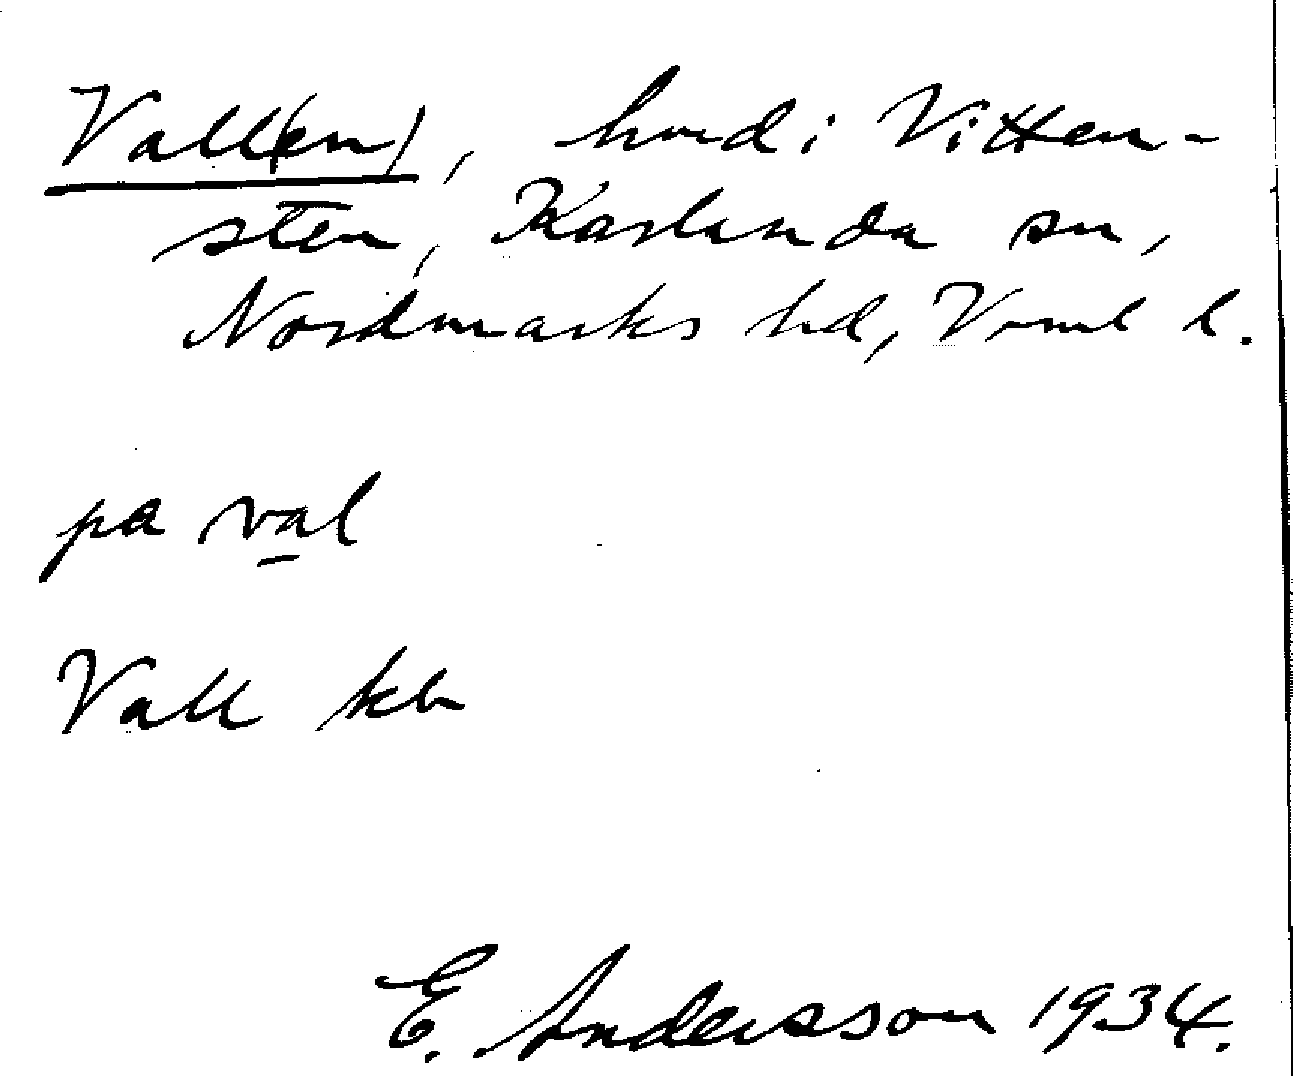 Vall(en), hmd i Vitten-
sten, Karlanda sn,
Nordmarks hd, Vrml l.
pa val
Vall kb
E. Andersson 1934.